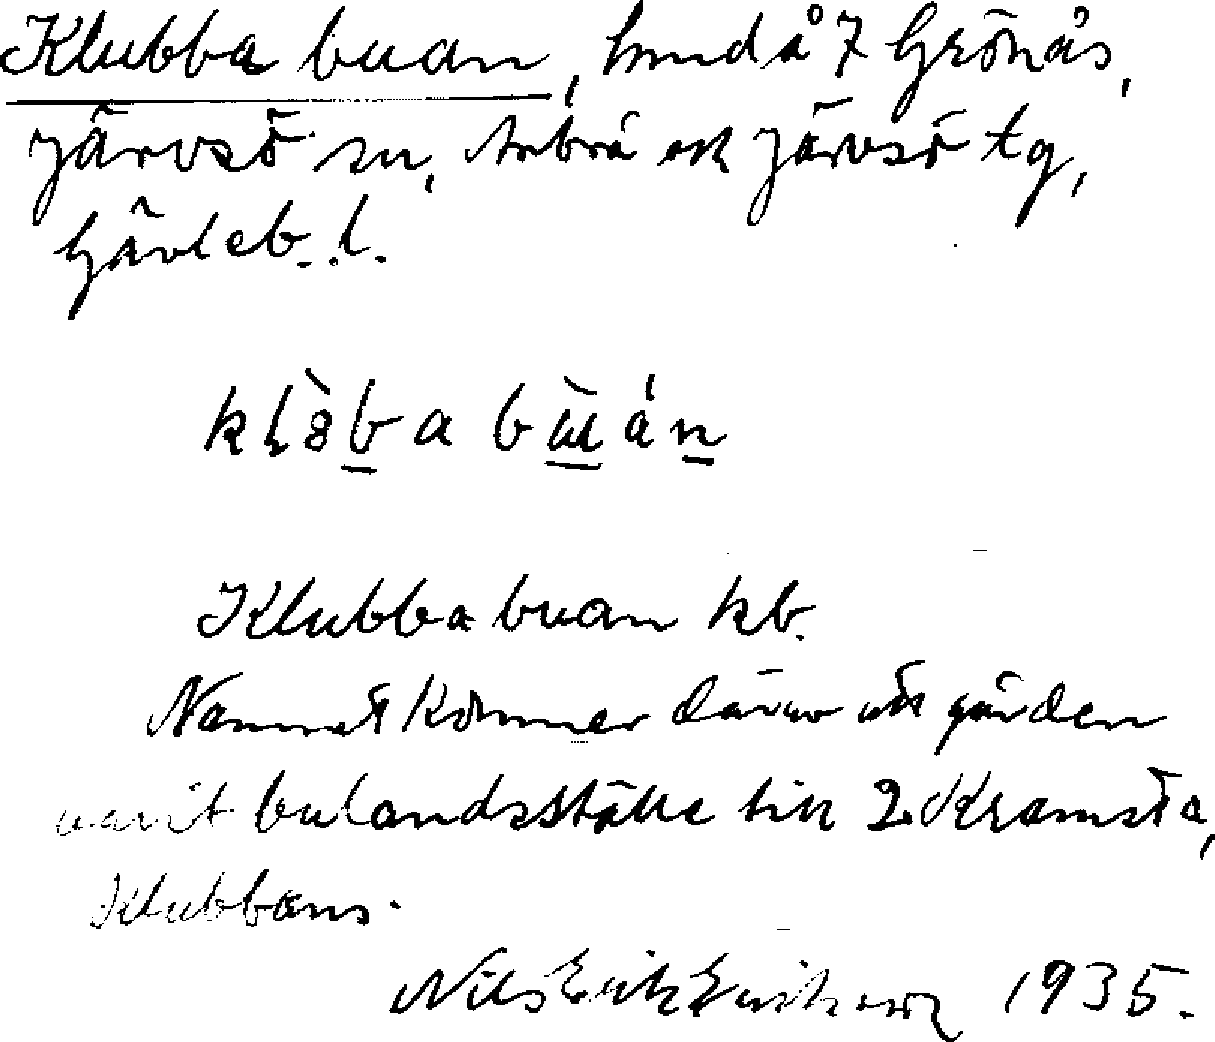 Klubba buan, hmd å 7 Grönås,
Järvsö sn, Arbrå och Järvsö tg,
Gävleb. l.
Klubba buan kb.
Namnet kommer därav att gården
varit bulandsställe till 2 Kramsta,
Klubbans.
Nils Erik Eriksson 1935.